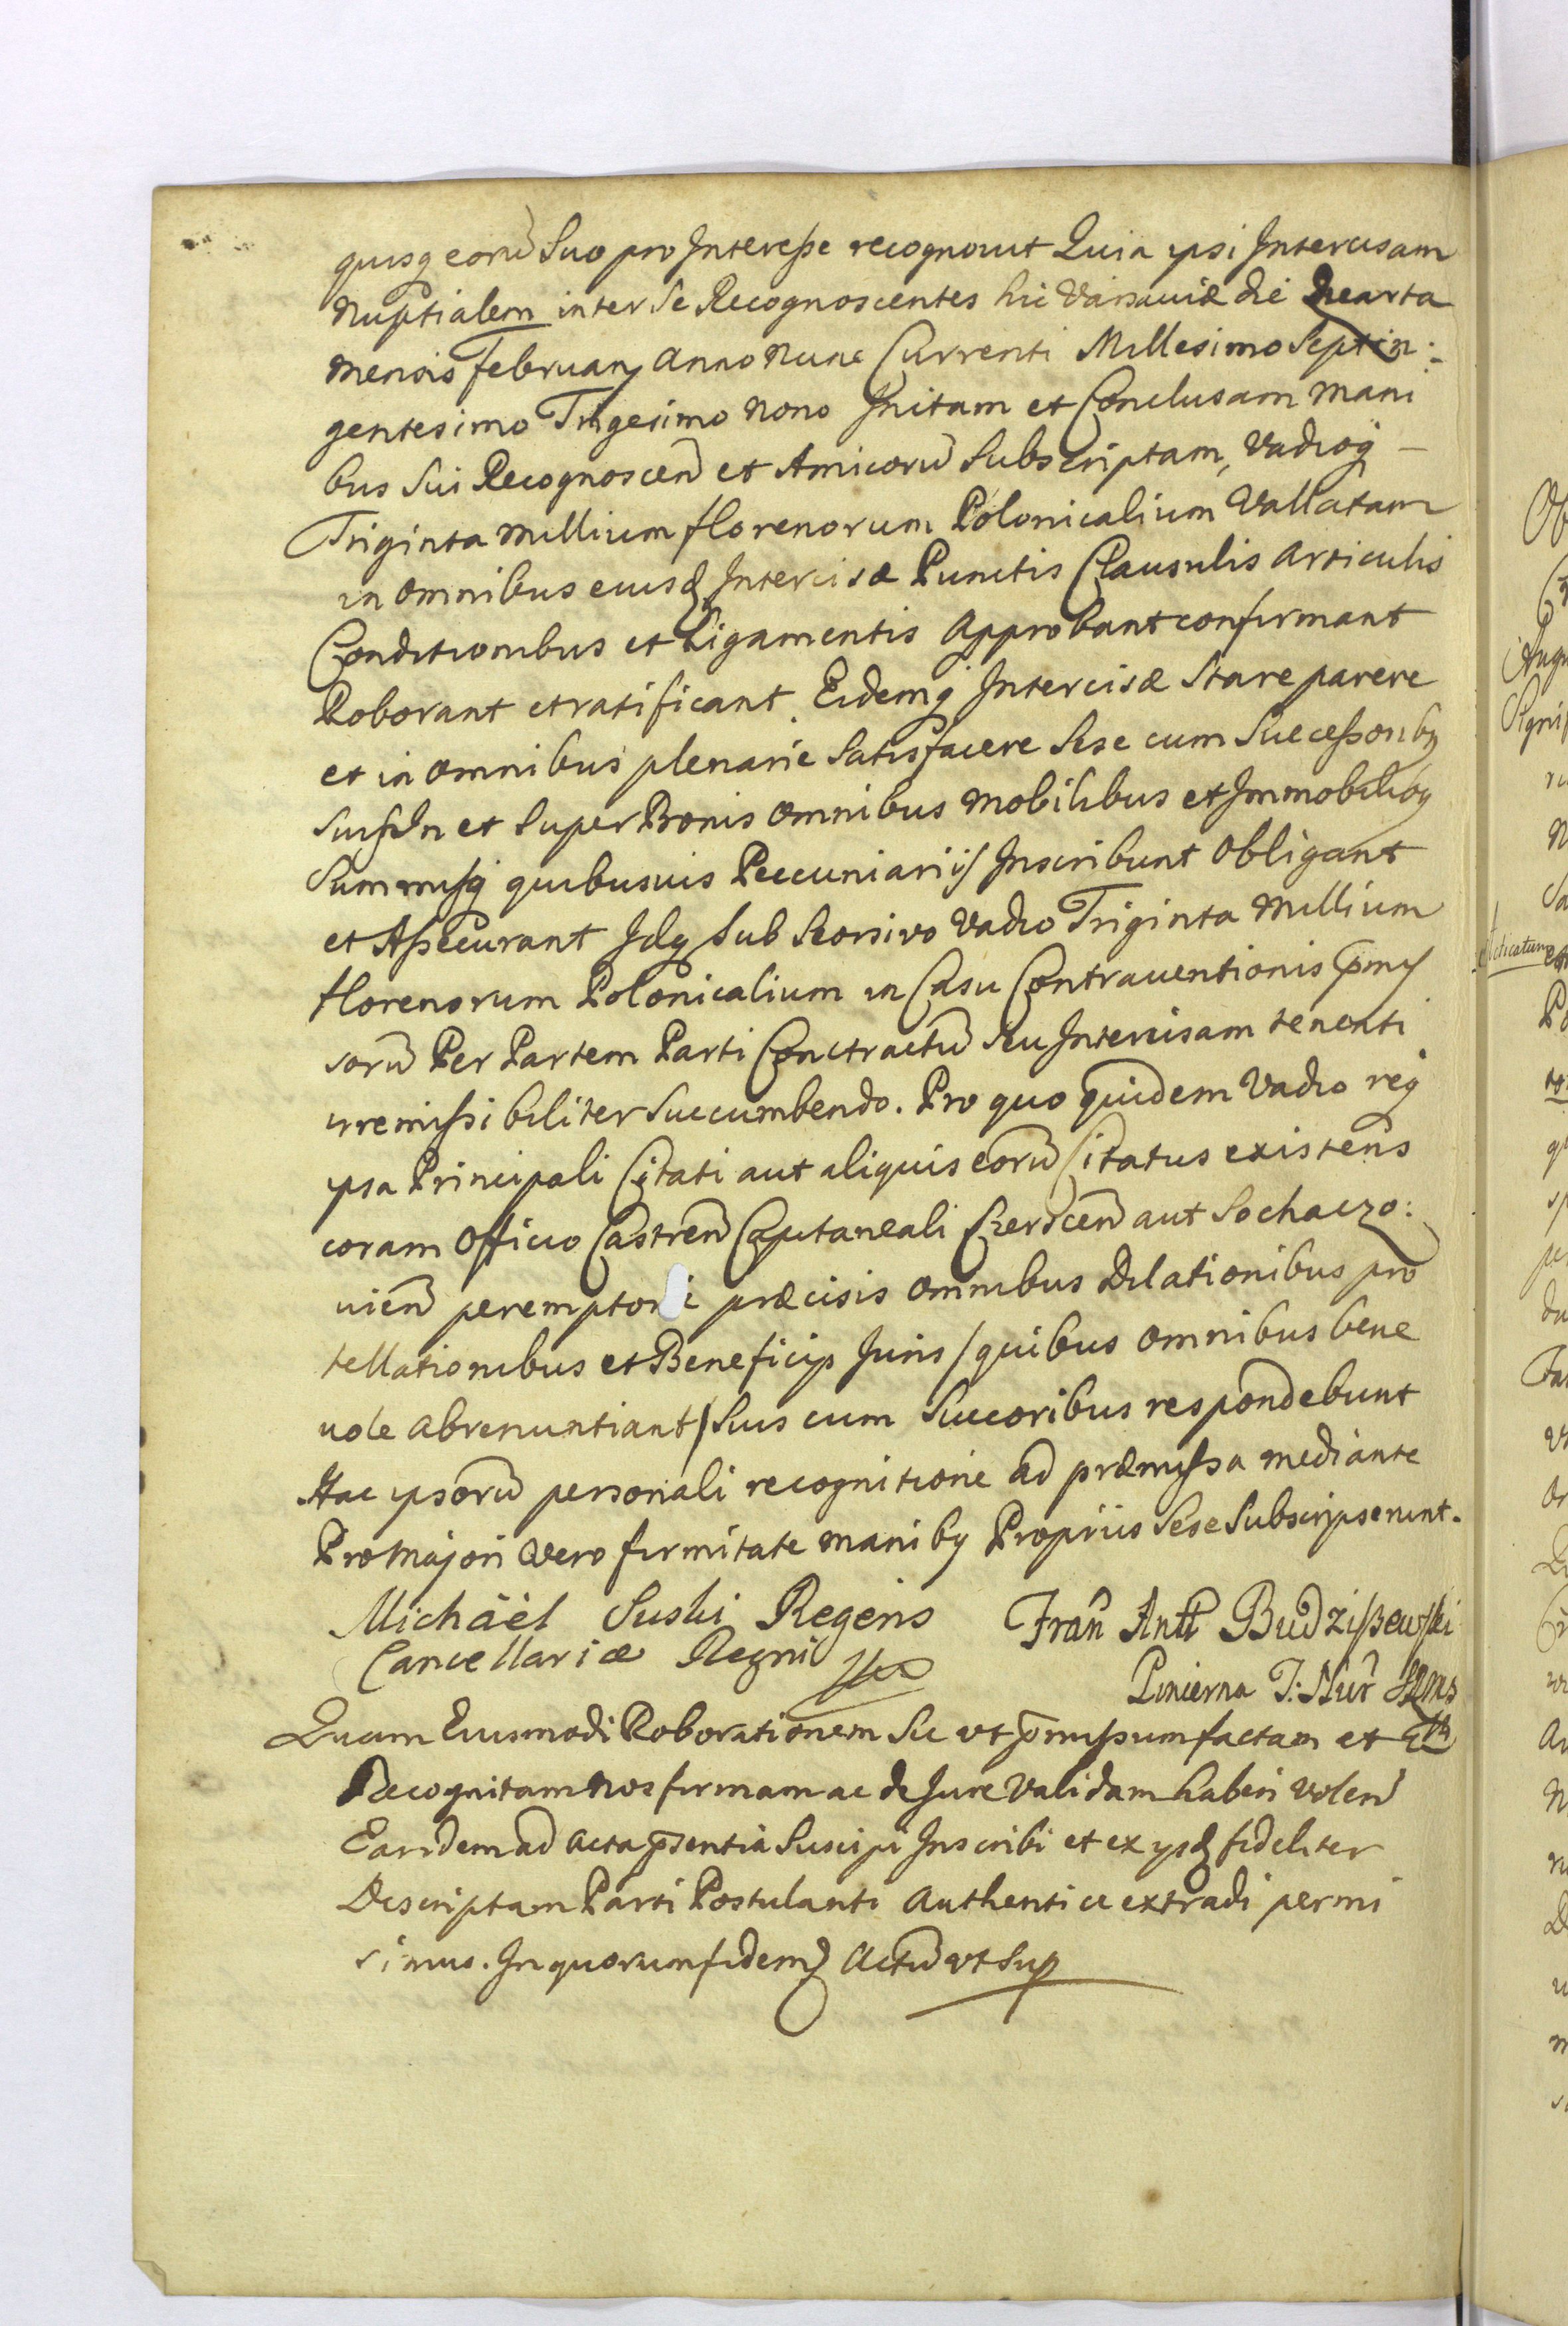 quisq eorũ Suo pro Interesse recognovit Quia ipsi Intercisam
Nuptialem inter Se Recognoscentes hic Varsaviæ die Quarta
mensis February Anno Nunc Currenti Millesimo Septin:
gentesimo Trigesimo Nono Initam et Conclusam mani
bus Sui Recognoscen̄ et Amicorũ Subscriptam, Vadioq –
Triginta Millium florenorum Polonicalium Vallatam
in omnibus eiusd Intercisæ Punctis Clausulis Articulis
Conditionibus et Ligamentis Approbant confirmant
Roborant et ratificant. Eidemq Intercisæ Stare parere
et in omnibus plenarie Satisfacere Sese cum Successoriby
Suis In et Super Bonis omnibus Mobilibus et Immobiliby
Summisq quibusvis Peccuniariis Inscribunt Obligant
et Assecurant Idq Sub Seorsivo Vadio Triginta Millium
florenorum Polonicalium in Casu Contraventionis p̄mis
sorũ Per Partem Parti Conctractũ Seu Intercisam tenenti
irremissibiliter Succumbendo. Pro quo quidem Vadio req
ipsa Principali Citati aut aliquis eorũ Citatus existens
coram Officio Castren̄ Capitaneali Czerscen̄ aut Sochaczo:
vien̄ peremptorie præcisis omnibus Dilationibus pro
tellationibus et Beneficijs Juris / quibus omnibus bene
vole abrenuntiant / Suis cum Succoribus respondebunt
Hac ipsorũ personali recognitione ad præmissa mediante
Pro Majori Vero firmitate maniby Propriis Sese Subscripserunt.
Michäel Suski Regens Fran̄ Antt Budziszewski
Cancellariæ Regni
Pincerna T: Nur̄
Quam Eiusmodi Roborationem Sic vt p̄missum factam et
Recognitam Nos firmam ac de Jure Validam haberi volen̄
Eandem ad Acta p̄sentia Suscipi Inscribi et ex ysd fideliter
Descriptam Parti Postulanti Authentice extradi permi
simus. In quorum fidem Actũ vt Sup